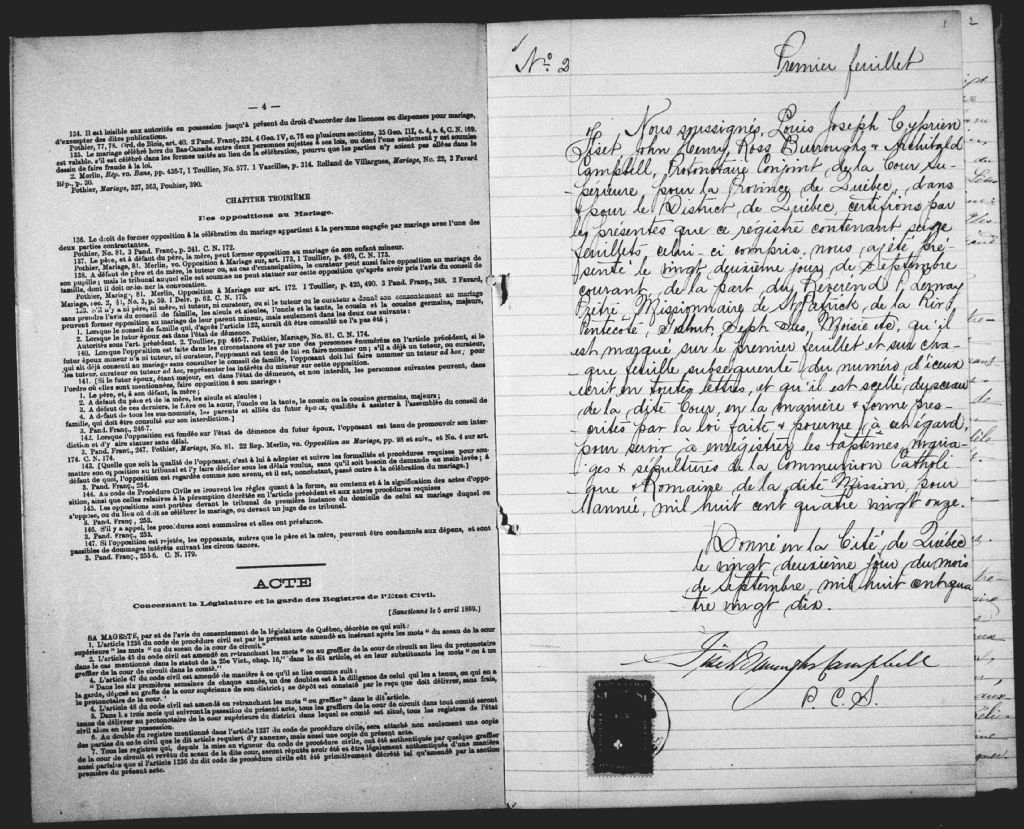 — 4 —
134. Il est loisible aux autorités en possession jusqu'à présent du droit d'accorder des licences ou dispenses pour mariage,
d'exempter des dites publications.
Pothier, 77, 78. Ord. de Blois, art. 40. 2 Pand. Franç., 224. 4 Geo. IV, c. 76 en plusieurs sections, 35 Geo. III, c. 4, s. 4, C. N. 169.
135. Le mariage célébré hors du Bas-Canada entre deux personnes sujettes à ses lois, ou dont l'une seulement y est soumise
est valable, s'il est célébré dans les formes usitées au lieu de la célébration, pourvu que les parties n'y soient pas allées dans le
dessein de faire fraude à la loi.
2. Merlin, Rép. vo. Bans, pp. 436-7, 1 Toullier, No. 577. 1 Vazeilles, p. 314. Rolland de Villargues, Mariage, No. 22, 3 Favard
Rép., p. 30.
Pothier, Mariage, 327, 363, Pouhier, 390.
CHAPITRE TROISIÈME
Des oppositions au Mariage.
136. Le droit de former opposition à la célébration du mariage appartient à la personne engagée par mariage avec l'une des
deux parties contractantes.
Pothier, No. 81. 3 Pand. Franç., p. 241. C. N. 172.
137. Le père, et à défaut du père, la mère, peut former opposition au mariage de son enfant mineur.
Pothier, Mariage, 81. Merlin, vo. Opposition à Mariage sur. art. 173, 1 Toullier, p. 489, C. N. 173.
138. A défaut de père et de mère, le tuteur ou, au cas d'émancipation, le curateur peut aussi faire opposition au mariage de
son pupille ; mais le tribunal auquel elle est soumise ne peut statuer sur cette opposition qu'après avoir pris l'avis du conseil de
famille, dont il doit ordonner la convocation.
Pothier, Mariage, 81. Merlin, Opposition à Mariage sur art. 172. 1 Toullier, p. 425, 490. 3 Pand. Franç., 248. 2 Favard,
Mariage, sec. 2, §1, No. 3, p. 59. 1 Delv. p. 62. C. N. 175.
139. S'il n'y a ni père, ni mère, ni tuteur, ni curateur, ou si le tuteur ou le curateur a donné son consentement au mariage
sans prendre l'avis du conseil de famille, les aïeuls et aïeules, l'oncle et la tante, le cousin et la cousine germains, majeurs,
peuvent former opposition au mariage de leur parent mineur, mais seulement dans les deux cas suivants :
1. Lorsque le conseil de famille qui, d'après l'article 122, aurait dû être consulté ne l'a pas été ;
2. Lorsque le futur époux est dans l'état de démence.
Autorités sous l'art. précédent. 2. Toullier, pp 446-7. Pothier, Mariage, No. 81. C. N. 174.
140. Lorsque l'opposition est faite dans les circonstances et par une des personnes énumérées en l'article précédent, si le
futur époux mineur n'a ni tuteur, ni curateur, l'opposant est tenu de lui en faire nommer un ; s'il a déjà un tuteur, ou curateur,
qui ait déjà consenti au mariage sans consulter le conseil de famille, l'opposant doit lui faire nommer un tuteur ad hoc ; pour
les tuteur, curateur ou tuteur ad hoc, représenter les intérêts du mineur sur cette opposition.
141. [Si le futur époux, étant majeur, est dans l'état de démence, et non interdit, les personnes suivantes peuvent, dans
l'ordre où elles sont mentionnées, faire opposition à son mariage :
1. Le père, et, à son défaut, la mère ;
2. A défaut du père et de la mère, les aïeuls et aïeules ;
3. A défaut de ces derniers, le frère ou la sœur, l'oncle ou la tante, le cousin ou la cousine germains, majeurs ;
4. A défaut de tous les sus-nommés, les parents et alliés du futur époux, qualifiés à assister à l'assemblée du conseil de
famille, qui doit être consulté sur son interdiction.]
3. Pand. Franç., 246-7.
142. Lorsque l'opposition est fondée sur l'état de démence du futur époux, l'opposant est tenu de promouvoir son inter-
diction et d'y faire statuer sans délai.
3. Pand. Franç., 247. Pothier, Mariage, No. 81. 22 Rep. Merlin, vo. Opposition au Mariage, pp 98 et suiv., et No. 4 sur art.
174. C. N. 174.
143. [Quelle que soit la qualité de l'opposant, c'est à lui à adopter et suivre les formalités et procédures requises pour sou-
mettre son opposition au tribunal et l'y faire décider sous les délais voulus, sans qu'il soit besoin de demande en main-levée ; à
défaut de quoi, l'opposition est regardée comme non avenue, et il est, nonobstant, passé outre à la célébration du mariage.]
3. Pand. Franç., 254.
144. Au code de Procédure Civile se trouvent les règles quant à la forme, au contenu et à la signification des actes d'oppo-
sition, ainsi que celles relatives à la péremption décrétée en l'article précédent et aux autres procédures requises
145. Les oppositions sont portées devant le tribunal de première instance du domicile de celui au mariage duquel on
s'oppose, ou du lieu où doit se célébrer le mariage, ou devant un juge de ce tribunal.
3. Pand. Franç., 253.
146. S'il y a appel, les procédures sont sommaires et elles ont préséance.
3. Pand. Franç., 253.
147. Si l'opposition est rejetée, les opposants, autres que le père et la mère, peuvent être condamnés aux dépens, et sont
passibles de dommages intérêts suivant les circonstances.
3. Pand. Franç., 255-6. C. N. 179.
ACTE
Concernant la Législature et la garde des Registres de l'Etat Civil.
[Sanctionné le 5 avril 1869.]
SA MAGESTÉ, par et de l'avis du consentement de la législature de Québec, décrète ce qui suit :
1. L'article 1236 du code de procédure civil est par le présent acte amendé en insérant après les mots " du sceau de la cour
supérieure " les mots " ou du sceau de la cour de circuit."
2. L'article 45 du code civil est amendé en retranchant les mots " ou au greffier de la cour de circuit au lieu du protonotaire
dans le cas mentionné dans le statut de la 25e Vict., chap. 16," dans le dit article, et en leur substituants les mots " ou à un
greffier de la cour de circuit dans le comté."
4. L'article 47 du code civil est amendé de manière à ce qu'il se lise comme suit :
" Dans les six premières semaines de chaque année, un des doubles est à la diligence de celui qui les a tenus, ou qui en a
la garde, déposé au greffe de la cour supérieure de son district ; ce dépôt est constaté par le reçu que doit délivrer, sans frais,
le protonotaire de la cour."
4. L'article 48 du code civil est amendé en retranchant les mots " ou greffier " dans le dit article.
5. Dans les trois mois qui suivront la passation du présent acte, tous les greffiers de la cour de circuit dans tout comté seront
tenus de délivrer au protonotaire de la cour supérieure du district dans lequel ce comté est situé, tous les registres de l'état
civil alors en leur possession.
6. Au double du registre mentionné dans l'article 1237 du code de procédure civile, sera attaché non seulement une copie
des parties du code civil que le dit article requiert d'y annexer, mais aussi une copie du présent acte.
7. Tous les registres qui, depuis la mise en vigueur du code de procédure civile, ont été authentiqué par quelque greffier
de la cour de circuit et revêtu du sceau de la dite cour, seront réputés avoir été et être légalement authentiqués d'une manière
aussi parfaite que si l'article 1236 du dit code de procédure civile eût été primitivement décrété tel qu'amendé par la section
première du présent acte.
No. 2
Premier feuillet
1
2
Nous soussignés, Louis Joseph Cyprien
Fiset, John Henry Ross Burroughs & Archibald
Campbell, Protonotaire Conjoint de la Cour Su-
périeure, pour la Province de Québec, dans
& pour le District de Québec, certifions par
les présentes que ce registre contenant seize
feuillets celui-ci compris, nous a été pré-
senté le vingt deuxième jour de Septembre
courant, de la part du Révérend Lemay
Prêtre Missionnaire de St Patrick de la Riv.
Pentecôte, Sept Iles, Moisie etc, qu'il
est marqué sur le premier feuillet et sur cha-
que feuille subséquente du numéro d'iceux
écrit en toutes lettres, et qu'il est scellé du sceau
de la dite Cour, en la manière & forme pres-
crites par la loi faite & pourvue à cet égard,
pour servir à enrégistrer les baptêmes, maria-
ges & sépultures de la Communion Catholi-
que & Romaine de la dite Mission, pour
l'année, mil huit cent quatre vingt onze.
Donné en la Cité de Québec
le vingt deuxième jour du mois
de septembre, mil huit cent qua
tre vingt dix.
Fiset Burroughs Campbell
P. C. S.